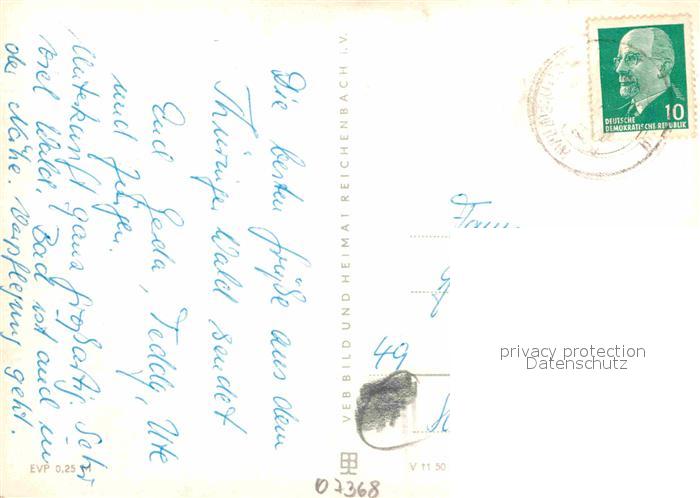 Die besten Grüße aus dem
Thüringer Wald sendet
Euch Gerda, Teddy, Ute
und Jürgen.
Unterkunft ganz großartig. Sehr
viel Wald. Bad ist auch in
der Nähe. Verpflegung geht.
EVP 0,25
VEB BILD UND HEIMAT REICHENBACH I. V.
V 11 50
10
DEUTSCHE
DEMOKRATISCHE REPUBLIK
49
privacy protection
Datenschutz
07368